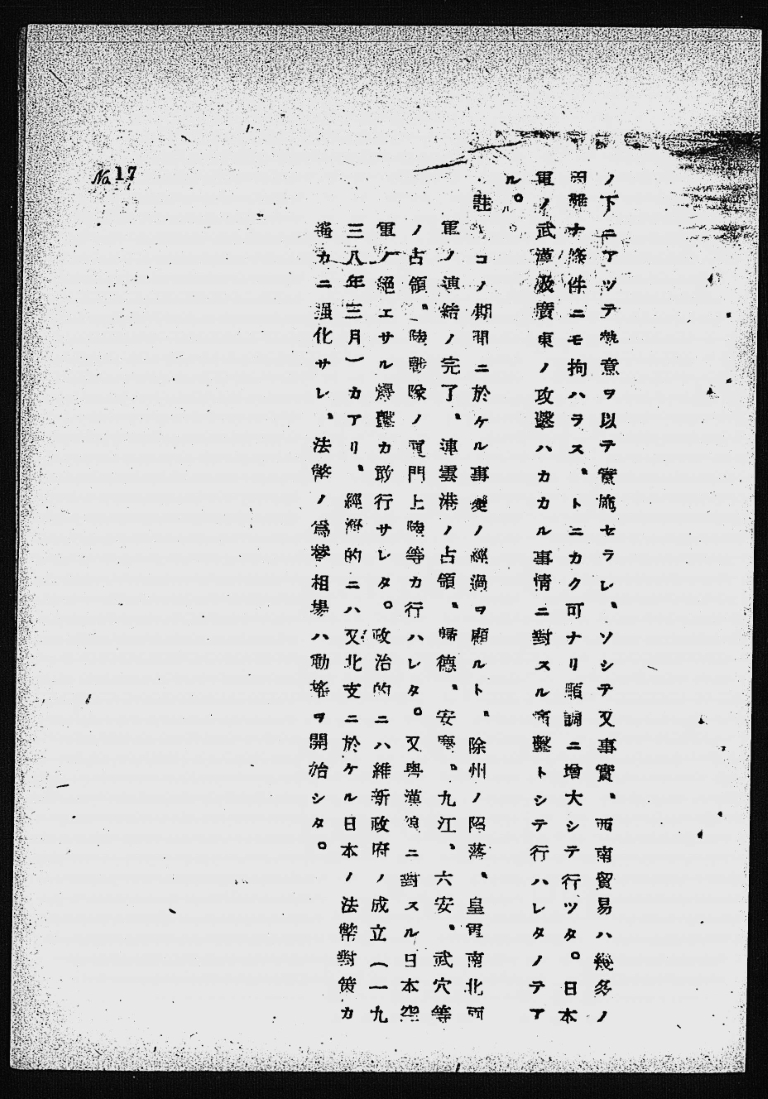 ノ下ニアツテ熱意ヲ以テ實施セラレ、ソシテ又事實、西南貿易ハ幾多ノ
困難ナ條件ニモ拘ハラス、トニカク可ナリ順調ニ增大シテ行ツタ。日本
軍ノ武漢及廣東ノ攻擊ハカカル事情ニ對スル痛擊トシテ行ハレタノテア
ル。
註、コノ期間ニ於ケル事變ノ經過ヲ顧ルト、除州ノ陷落、皇軍南北兩
軍ノ連結ノ完了、連雲港ノ占領、歸德、安慶、九江、六安、武穴等
ノ占領、陸戰隊ノ厦門上陸等カ行ハレタ。又粤漢線ニ對スル日本空
軍ノ絕エサル爆擊カ敢行サレタ。政治的ニハ維新政府ノ成立(一九
三八年三月)カアリ、經濟的ニハ又北支ニ於ケル日本ノ法幣對策カ
遙カニ强化サレ、法幣ノ爲替相場ハ動搖ヲ開始シタ。
No 17